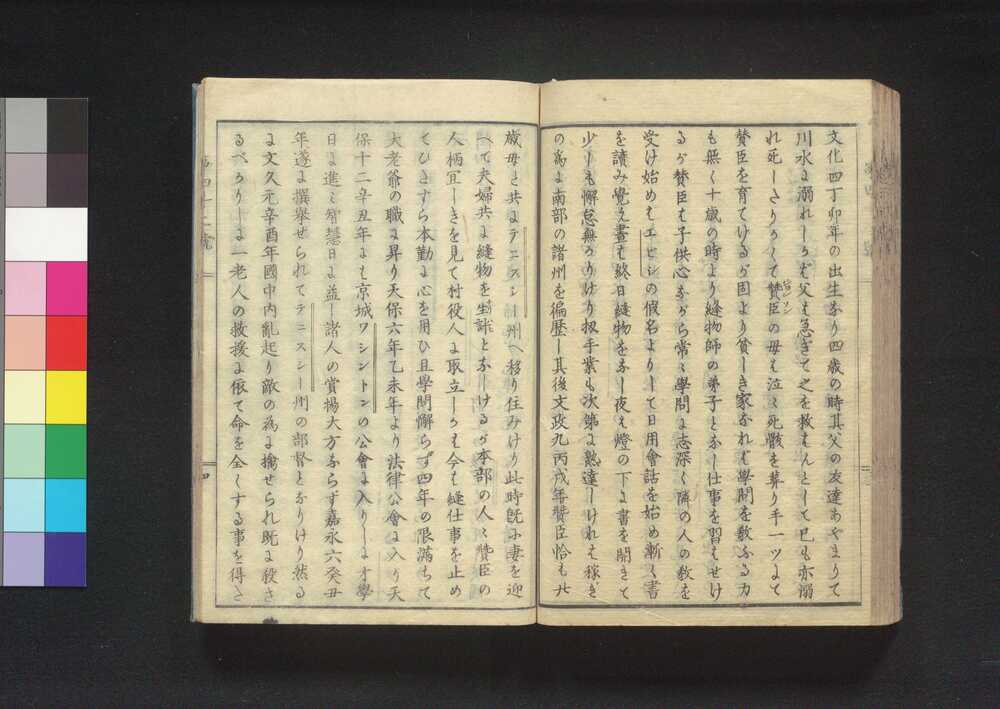 文化四丁卯年の出生なり四歳の時其父の友達あやまりて
川水に溺れしかば父は急ぎて之を救はんとして己も亦溺
れ死したりかくて賛臣の母は泣く泣く死骸を葬り手一ツにて
ヂョンソン
賛臣を育てけるが固より貧しき家なれば學問を教ふる力
も無く十歳の時より縫物師の弟子となし仕事を習はせけ
るが賛臣は子供心ながら常々學問に志深く隣の人の教を
受け始めはエビシの假名よりして日用會話を始め漸く書
を讀み覺え晝は終日縫物をなし夜は燈の下に書を開きて
少しも懈怠無かりけり扨手業も次第に熟達しければ稼ぎ
の為に南部の諸州を徧歴し其後文政九丙戌年賛臣恰も廿
歳母と共にテニスシー州へ移り住みけり此時既に妻を迎
へて夫婦共に縫物を生計となしけるが本部の人々賛臣の
人柄宜しきを見て村役人に取立しかば今は縫仕事を止め
てひたすら本勤に心を用ひ且學問懈らず四年の限滿ちて
大老爺の職に昇り天保六年乙未年より法律公會に入り天
保十二辛丑年には京城ワシントンの公會に入りしに才學
日に進み智慧日に益し諸人の賞揚大方ならず嘉永六癸丑
年遂に撰擧せられてテニスシー州の部督となりけり然る
に文久元辛酉年國中内亂起り敵の為に擒せられ既に殺さ
るべかりしに一老人の救援に依て命を全くする事を得た
四